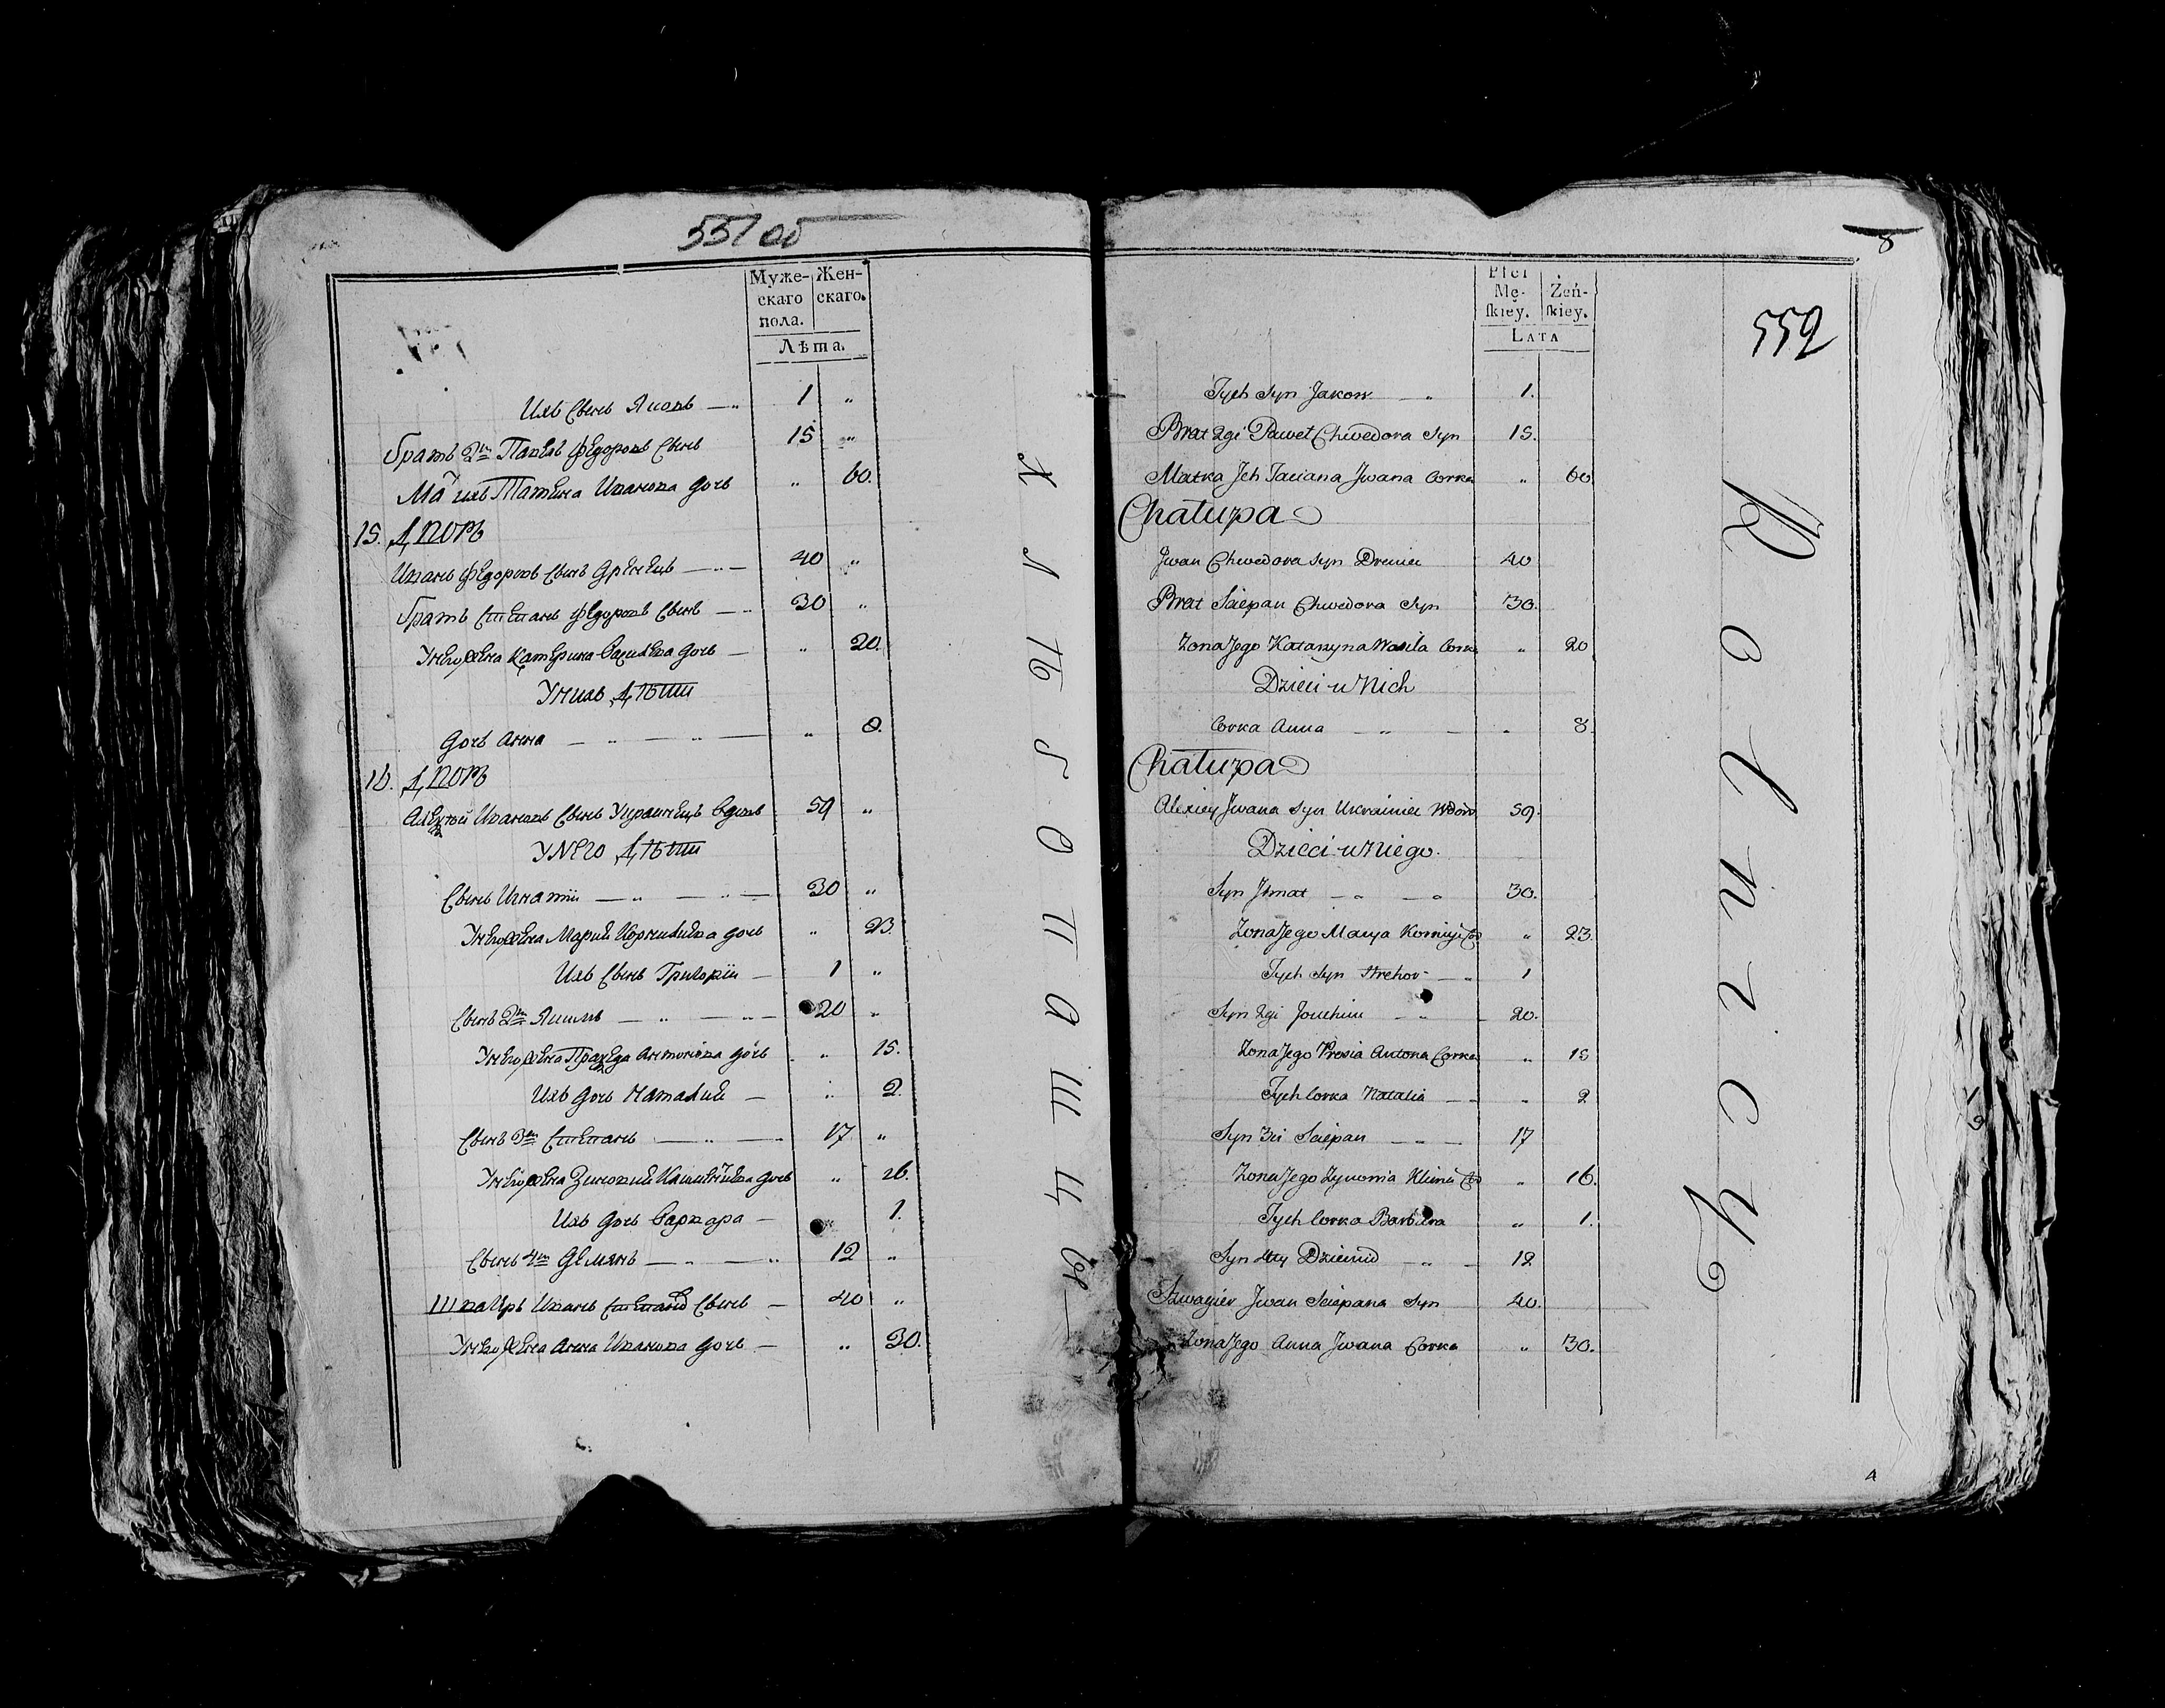 551 об
Муже- Жен-
скаго скаго.
пола.
Лѣта.
Ихъ Сынъ Яковъ — „ 1 „
братъ 2й Павелъ Федоровъ Сынъ 15 „
Ма ихъ Татяна Иванова дочь „ 60.
15. Дворъ
Иванъ Федоровъ Сынъ Древецъ — „ — 40 „
братъ Степанъ Федоровъ Сынъ — „ 30 „
Унего жена Катерина Василева дочь — „ 20.
Унихъ Дѣти
дочь Анна — „ — „ — „ 8.
16. Дворъ
Алексей Ивановъ Сынъ Украинецъ вдовъ 59 „
Унего Дѣти
Сынъ Игнатіи — „ — „ — 30 „
Унего жена Мария Корнилиева дочь „ 23.
Ихъ Сынъ Григорiи — 1 „
Сынъ 2й Якимъ — „ — „ — 20 „
Унего жена Праxеда Антонова дочь „ 15.
Ихъ дочь Наталия — „ 2.
Сынъ 3й Степанъ — „ — 17 „
Унего жена Зиновия дочь „ 16.
Ихъ дочь Варвара — „ 1.
Сынъ 4й Демянъ — „ — „ 12 „
Швагиръ Иванъ Степанов Сынъ — 40 „
Унего жена Анна Иванова дочь — „ 30.
Х Л Ѣ Б О П А Ш Ц Ы
8
Płci
Mę- Żeń-
skiey. skiey.
Lata
552
Tych Syn Jakow — „ 1.
Brat 2gi Paweł Chwedora Syn 15.
Matka Jch Taciana Jwana Corka „ 60
Chałupa
Jwan Chwedora Syn Dreuiec 40
Brat Sciepan Chwedora Syn 30.
Zona Jego Katarzyna Wasila Corka „ 20
Dzieci u Nich
Corka Anna — „ — „ 8
Chałupa
Alexiey Jwana Syn Ukrainiec Wdow 59.
Dzieci u Niego.
Syn Jhnat — „ — „ 30.
Zona Jego Marya Korniyi Co „ 23.
Tych Syn Hrehor — „ 1
Syn 2gi Jouchim — „ 20.
Zona Jego Prosia Antona Corka „ 15
Tych Corka Natalia — — „ 2
Syn 3ci Sciepan — „ — 17
Zona Jego Zynowia Klima Co „ 16.
Tych Corka Barbara „ 1.
Syn 4ty Dziemid — „ — 12
Szwagier Jwan Sciepana Syn 40.
Zona Jego Anna Jwana Corka „ 30.
R o l n i c y
4